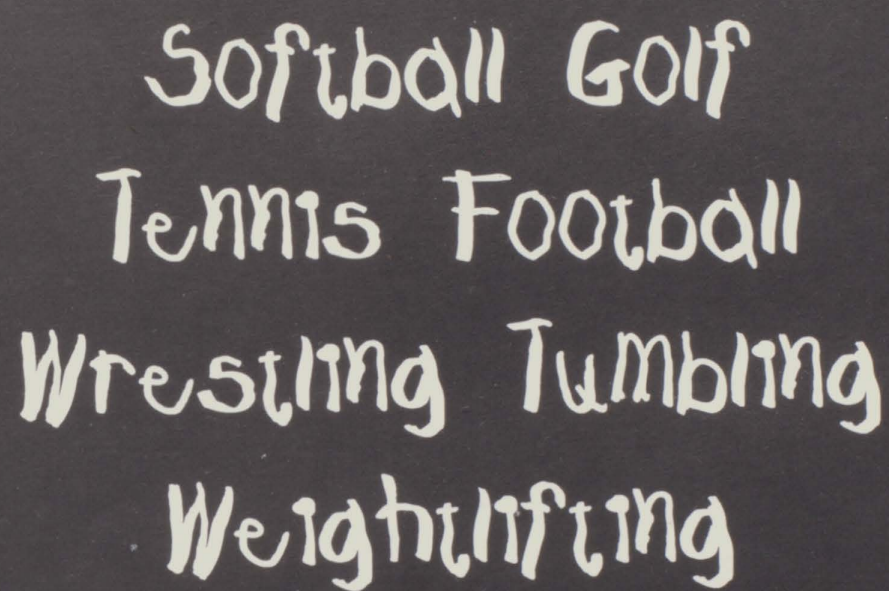 Softball Golf
Tennis Football
Wrestling Tumbling
Weightlifting